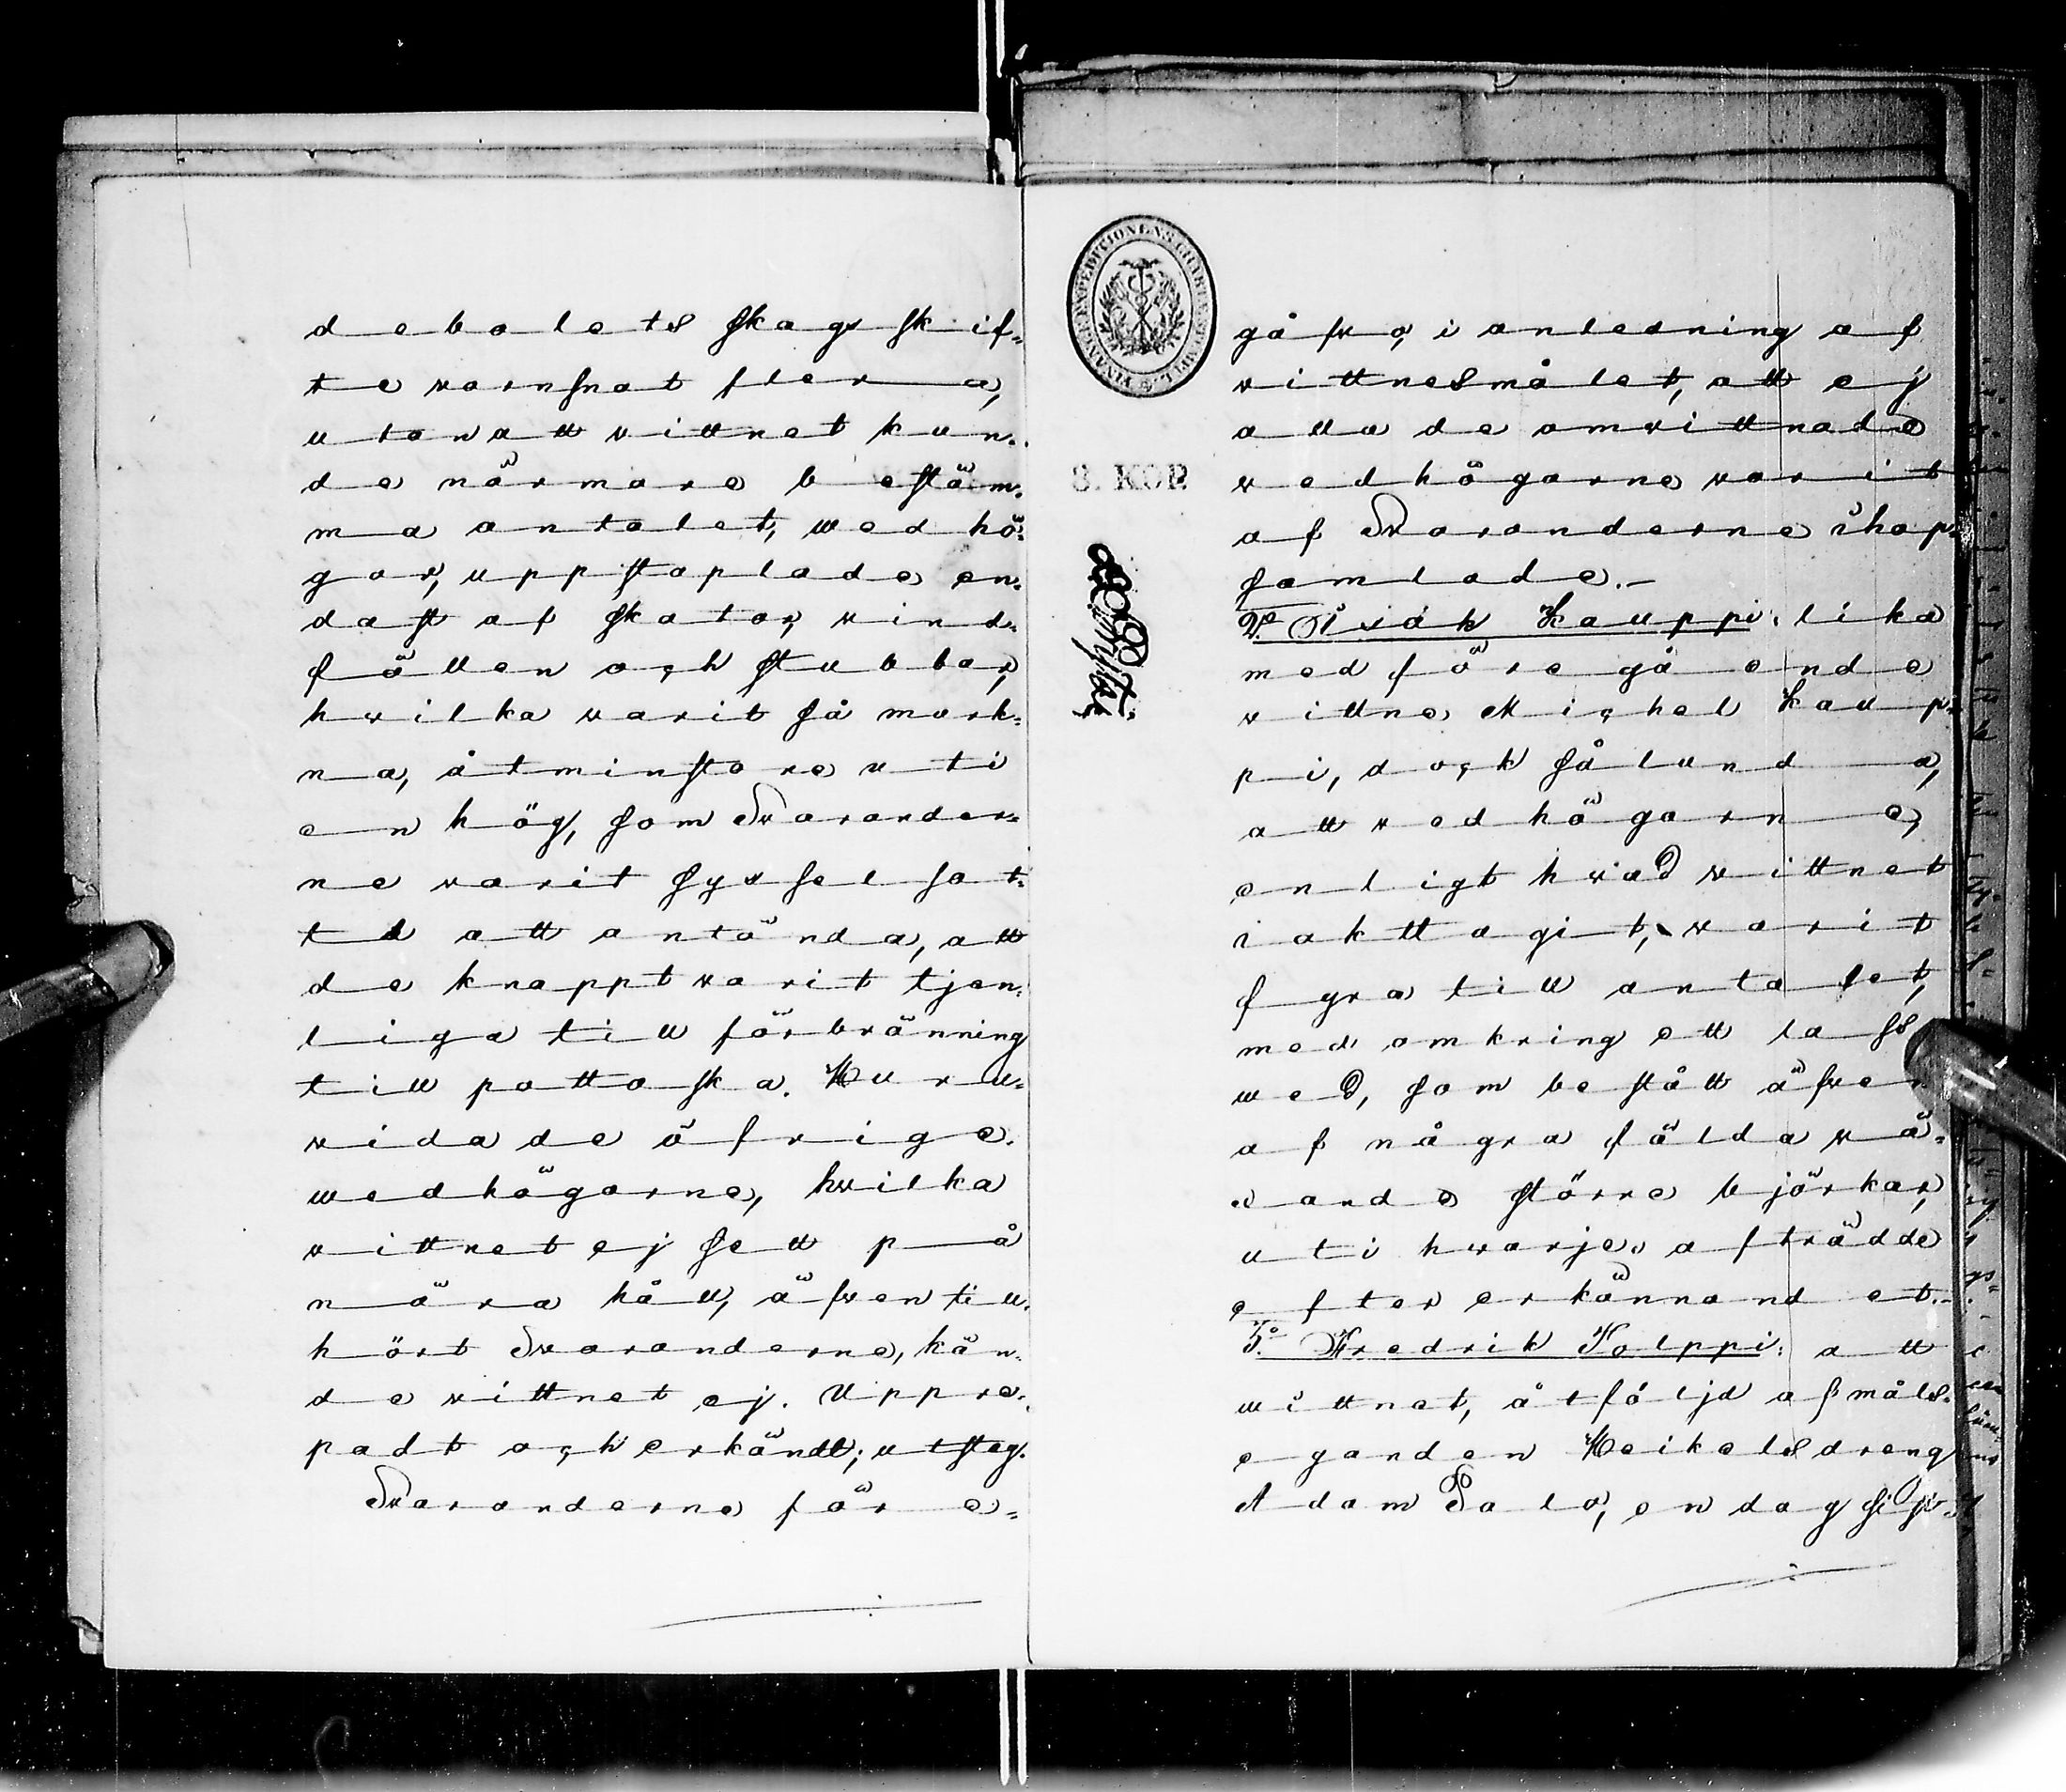 debolets skogsskif-
te warsnat flera,
utan att vittnet kun-
de närmare bestäm-
ma antalet, wedhö-
gar, uppstaplade en-
dast af skator, vind-
fällen och stubbar,
hwilka varit så mork-
na, åtminstone uti
en hög, som Svarander-
ne varit sysselsat-
te att antända, att
de knappt varit tjen-
liga till förbränning
till pottaska. Huru-
vida de öfrige
wedhögarne, hvilka
vittnet ej sett på
nära håll, äfven till-
hört Svaranderne, kän-
de vittnet ej. Uppre-
padt och erkändt; utsteg.
Svaranderne före-
8. KOP.
gåfvo, i anledning af
vittnesmålet, att ej
alla de omvittnade
vedhögarne varit
af Svaranderne ihop-
samlade.-
2o. Isak Kauppi: lika
med föregående
vittne Michel Kaup-
pi, dock sålunda,
att vedhögarne,
enligt hvad vittnet
iakttagit, varit
fyra till antalet,
med omkring ett lass
wed, som bestått äfven
af några fälda vä-
xande större björkar,
uti hvarje; afträdde
efter erkännandet.-
3o. Fredrik Tolppi: att
wittnet, åtföljd af måls-
eganden Heikels dreng
Adam Salo, en dag sist-